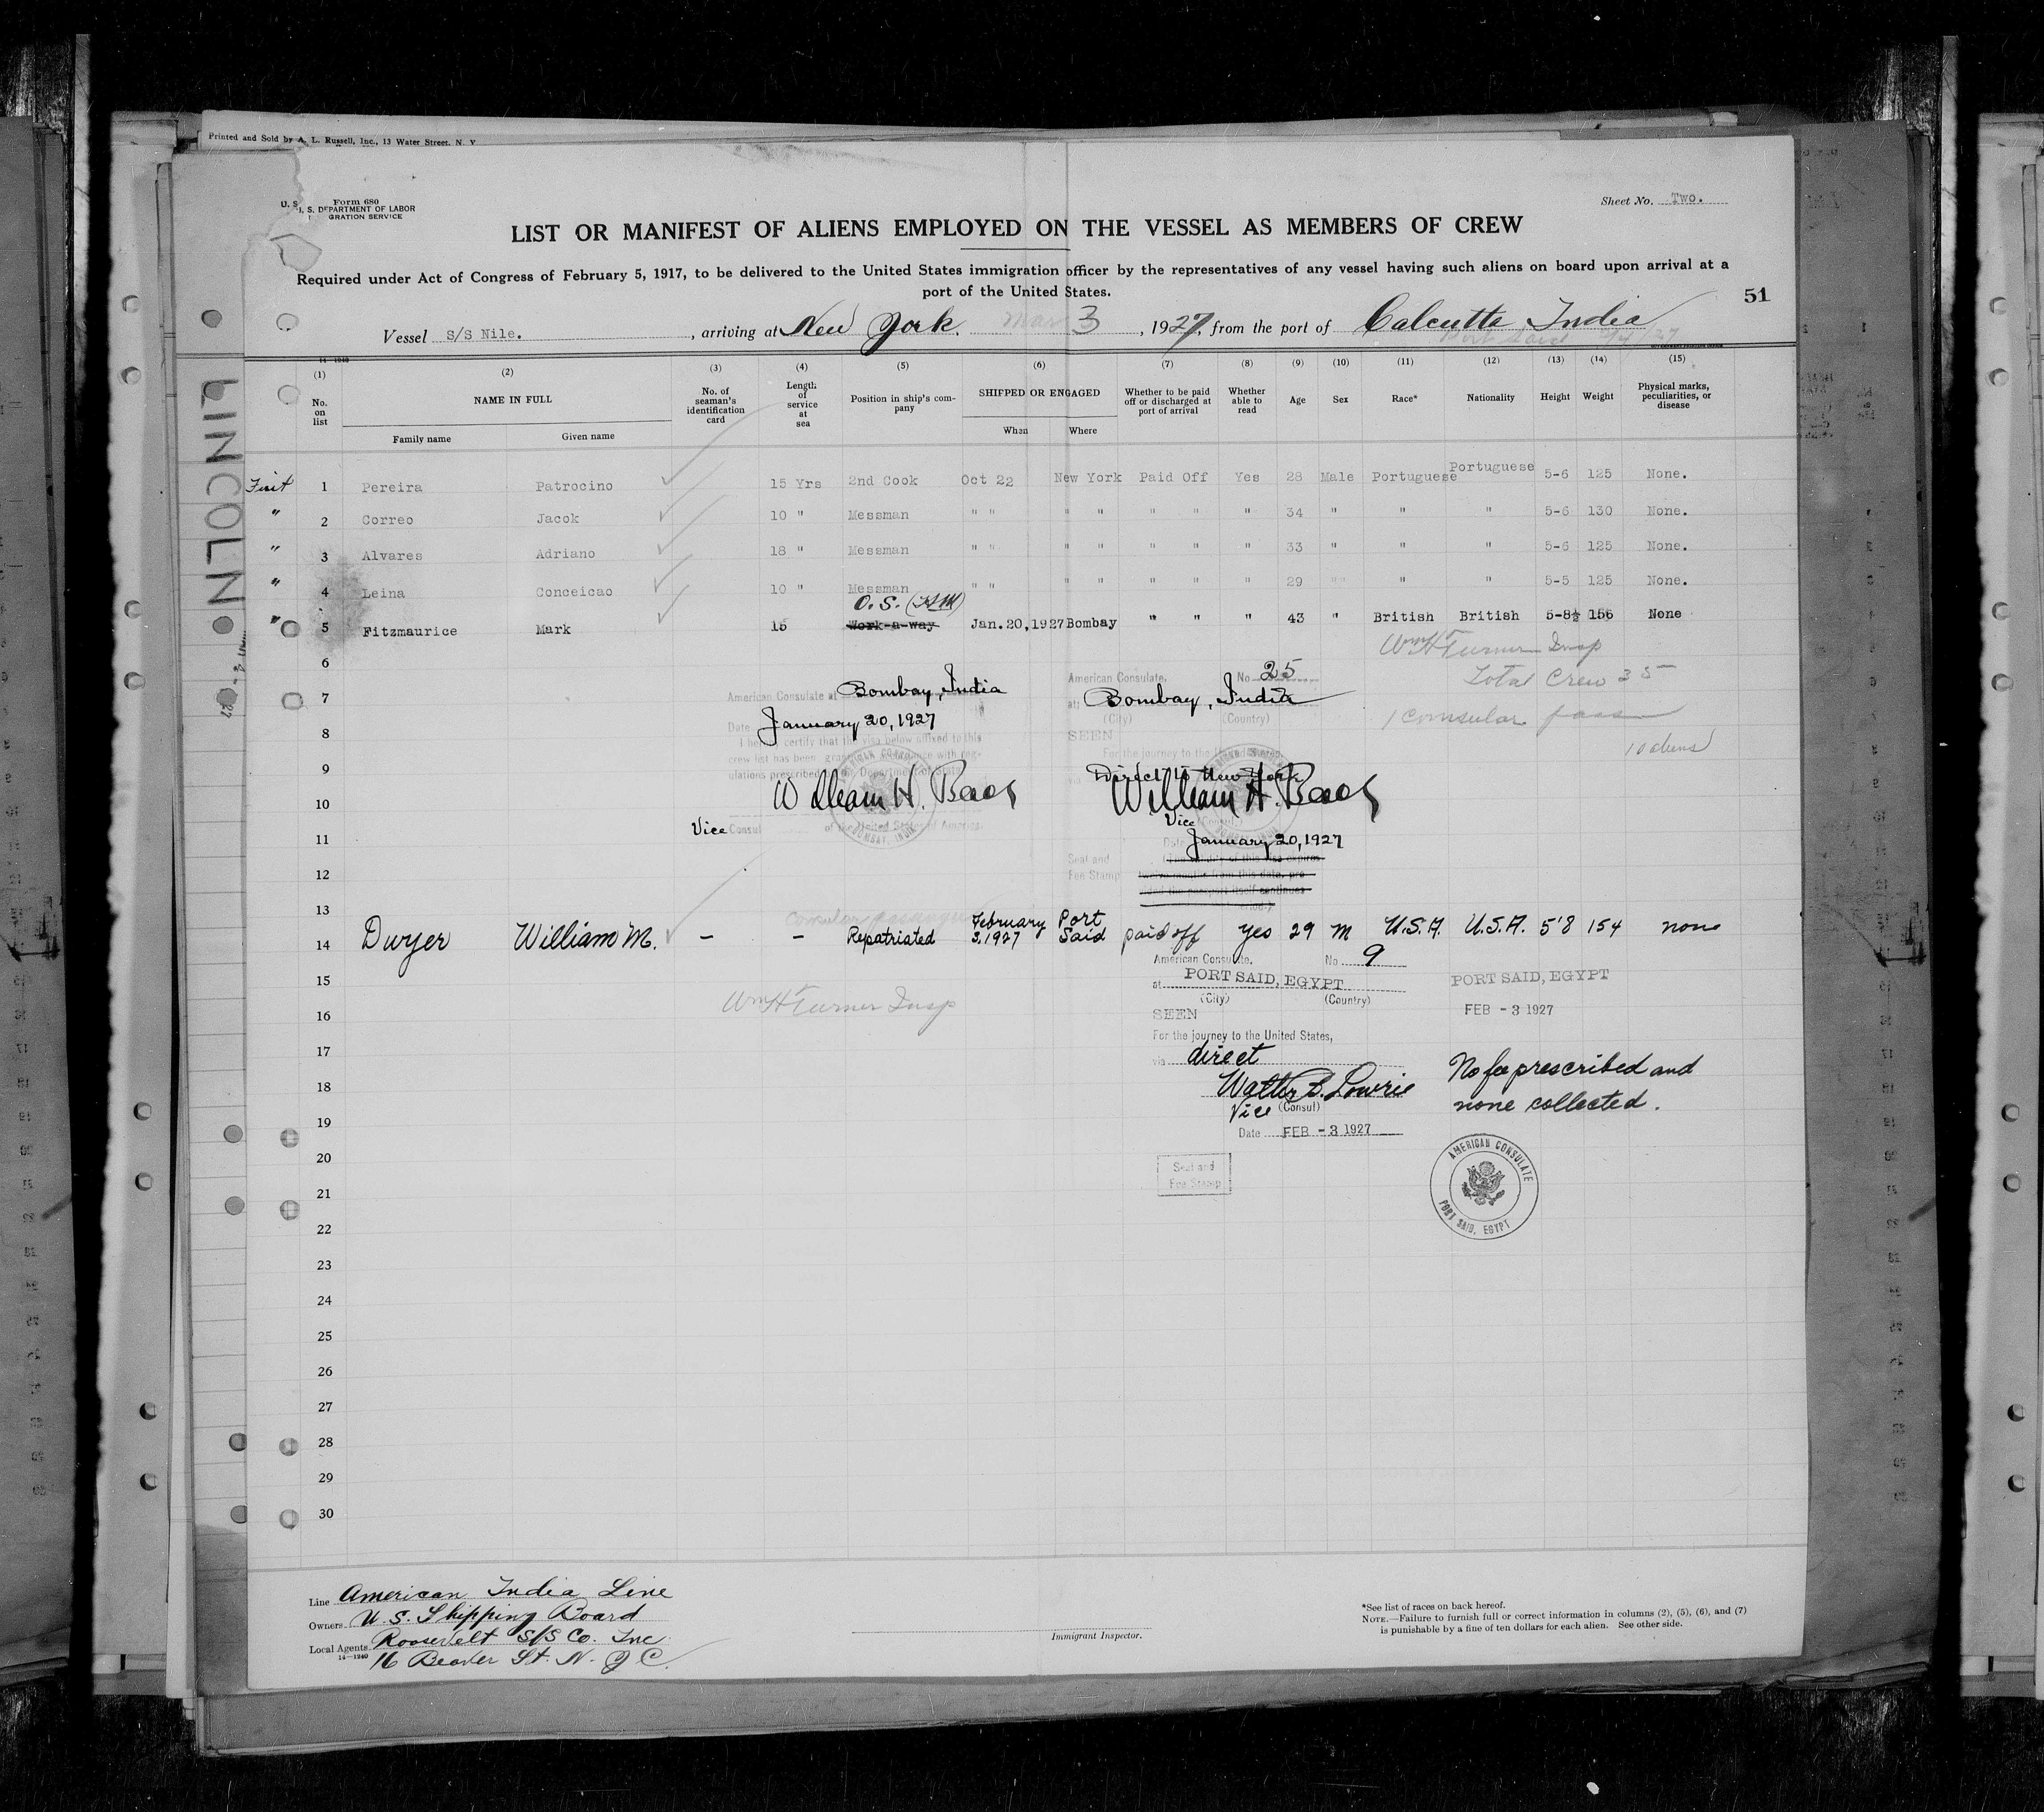 Printed and Sold by A. L. Russell, Inc., 13 Water Street, N. Y
Form 680
U. S. DEPARTMENT OF LABOR
GRATION SERVICE
Sheet No. Two.
LIST OR MANIFEST OF ALIENS EMPLOYED ON THE VESSEL AS MEMBERS OF CREW
Required under Act of Congress of February 5, 1917, to be delivered to the United States immigration officer by the representatives of any vessel having such aliens on board upon arrival at a
port of the United States.
51
Vessel S/S Nile. , arriving at New York, Mar 3 , 1927, from the port of Calcutta India
Port Said
14-1240
(1) (2) (3) (4) (5) (6) (7) (8) (9) (10) (11) (12) (13) (14) (15)
No. on list NAME IN FULL Family name Given name No. of seaman's identification card Length of service at sea Position in ship's company SHIPPED OR ENGAGED When Where Whether to be paid off or discharged at port of arrival Whether able to read Age Sex Race* Nationality Height Weight Physical marks, peculiarities, or disease
LINCOLN
First 1 Pereira Patrocino 15 Yrs 2nd Cook Oct 22 New York Paid Off Yes 28 Male Portuguese Portuguese 5-6 125 None.
" 2 Correo Jacok 10 " Messman " " " " " " " 34 " " " 5-6 130 None.
" 3 Alvares Adriano 18 " Messman " " " " " " " 33 " " " 5-6 125 None.
" 4 Leina Conceicao 10 " Messman " " " " " " " 29 " " " " 5-5 125 None.
O. S.
" 5 Fitzmaurice Mark 15 Work-a-way Jan.20,1927 Bombay " " " 43 " British British 5-8½ 156 None
Wm H Turner Insp
6
Total Crew 35
American Consulate, No. 25
7
American Consulate at Bombay, India
at: Bombay, India
(City) (Country)
1 Consular pass
Date January 20, 1927
8
I hereby certify that the visa below affixed to this
crew list has been granted in accordance with reg-
ulations prescribed by the Department of State
SEEN
For the journey to the United States,
via Direct to New York
10 aliens
9
10
William H. Beach
William H. Beach
Vice Consul of the United States of America.
Vice (Consul)
11
Date January 20, 1927
Seal and
Fee Stamp
validity of this visa expires
twelve months from this date, pro-
vided the passport itself continues
12
13
Consular passenger
14 Dwyer William M. - - Repatriated February 3. 1927 Port Said paid off yes 29 M U.S.A. U.S.A. 5'8 154 none
American Consulate, No. 9
15
at PORT SAID, EGYPT
(City) (Country)
PORT SAID, EGYPT
Wm H Turner Insp
16
SEEN
FEB - 3 1927
For the journey to the United States,
17
via direct
No fee prescribed and
18
Walter B. Lowrie
none collected.
Vice (Consul)
19
Date FEB - 3 1927
20
Seal and
Fee Stamp
AMERICAN CONSULATE
PORT SAID, EGYPT
21
22
23
24
25
26
27
28
29
30
Line American India Line
Owners U. S. Shipping Board
Local Agents Roosevelt S/S Co. Inc
14-1240
16 Beaver St. N. Y C.
Immigrant Inspector.
*See list of races on back hereof.
NOTE.—Failure to furnish full or correct information in columns (2), (5), (6), and (7)
is punishable by a fine of ten dollars for each alien. See other side.